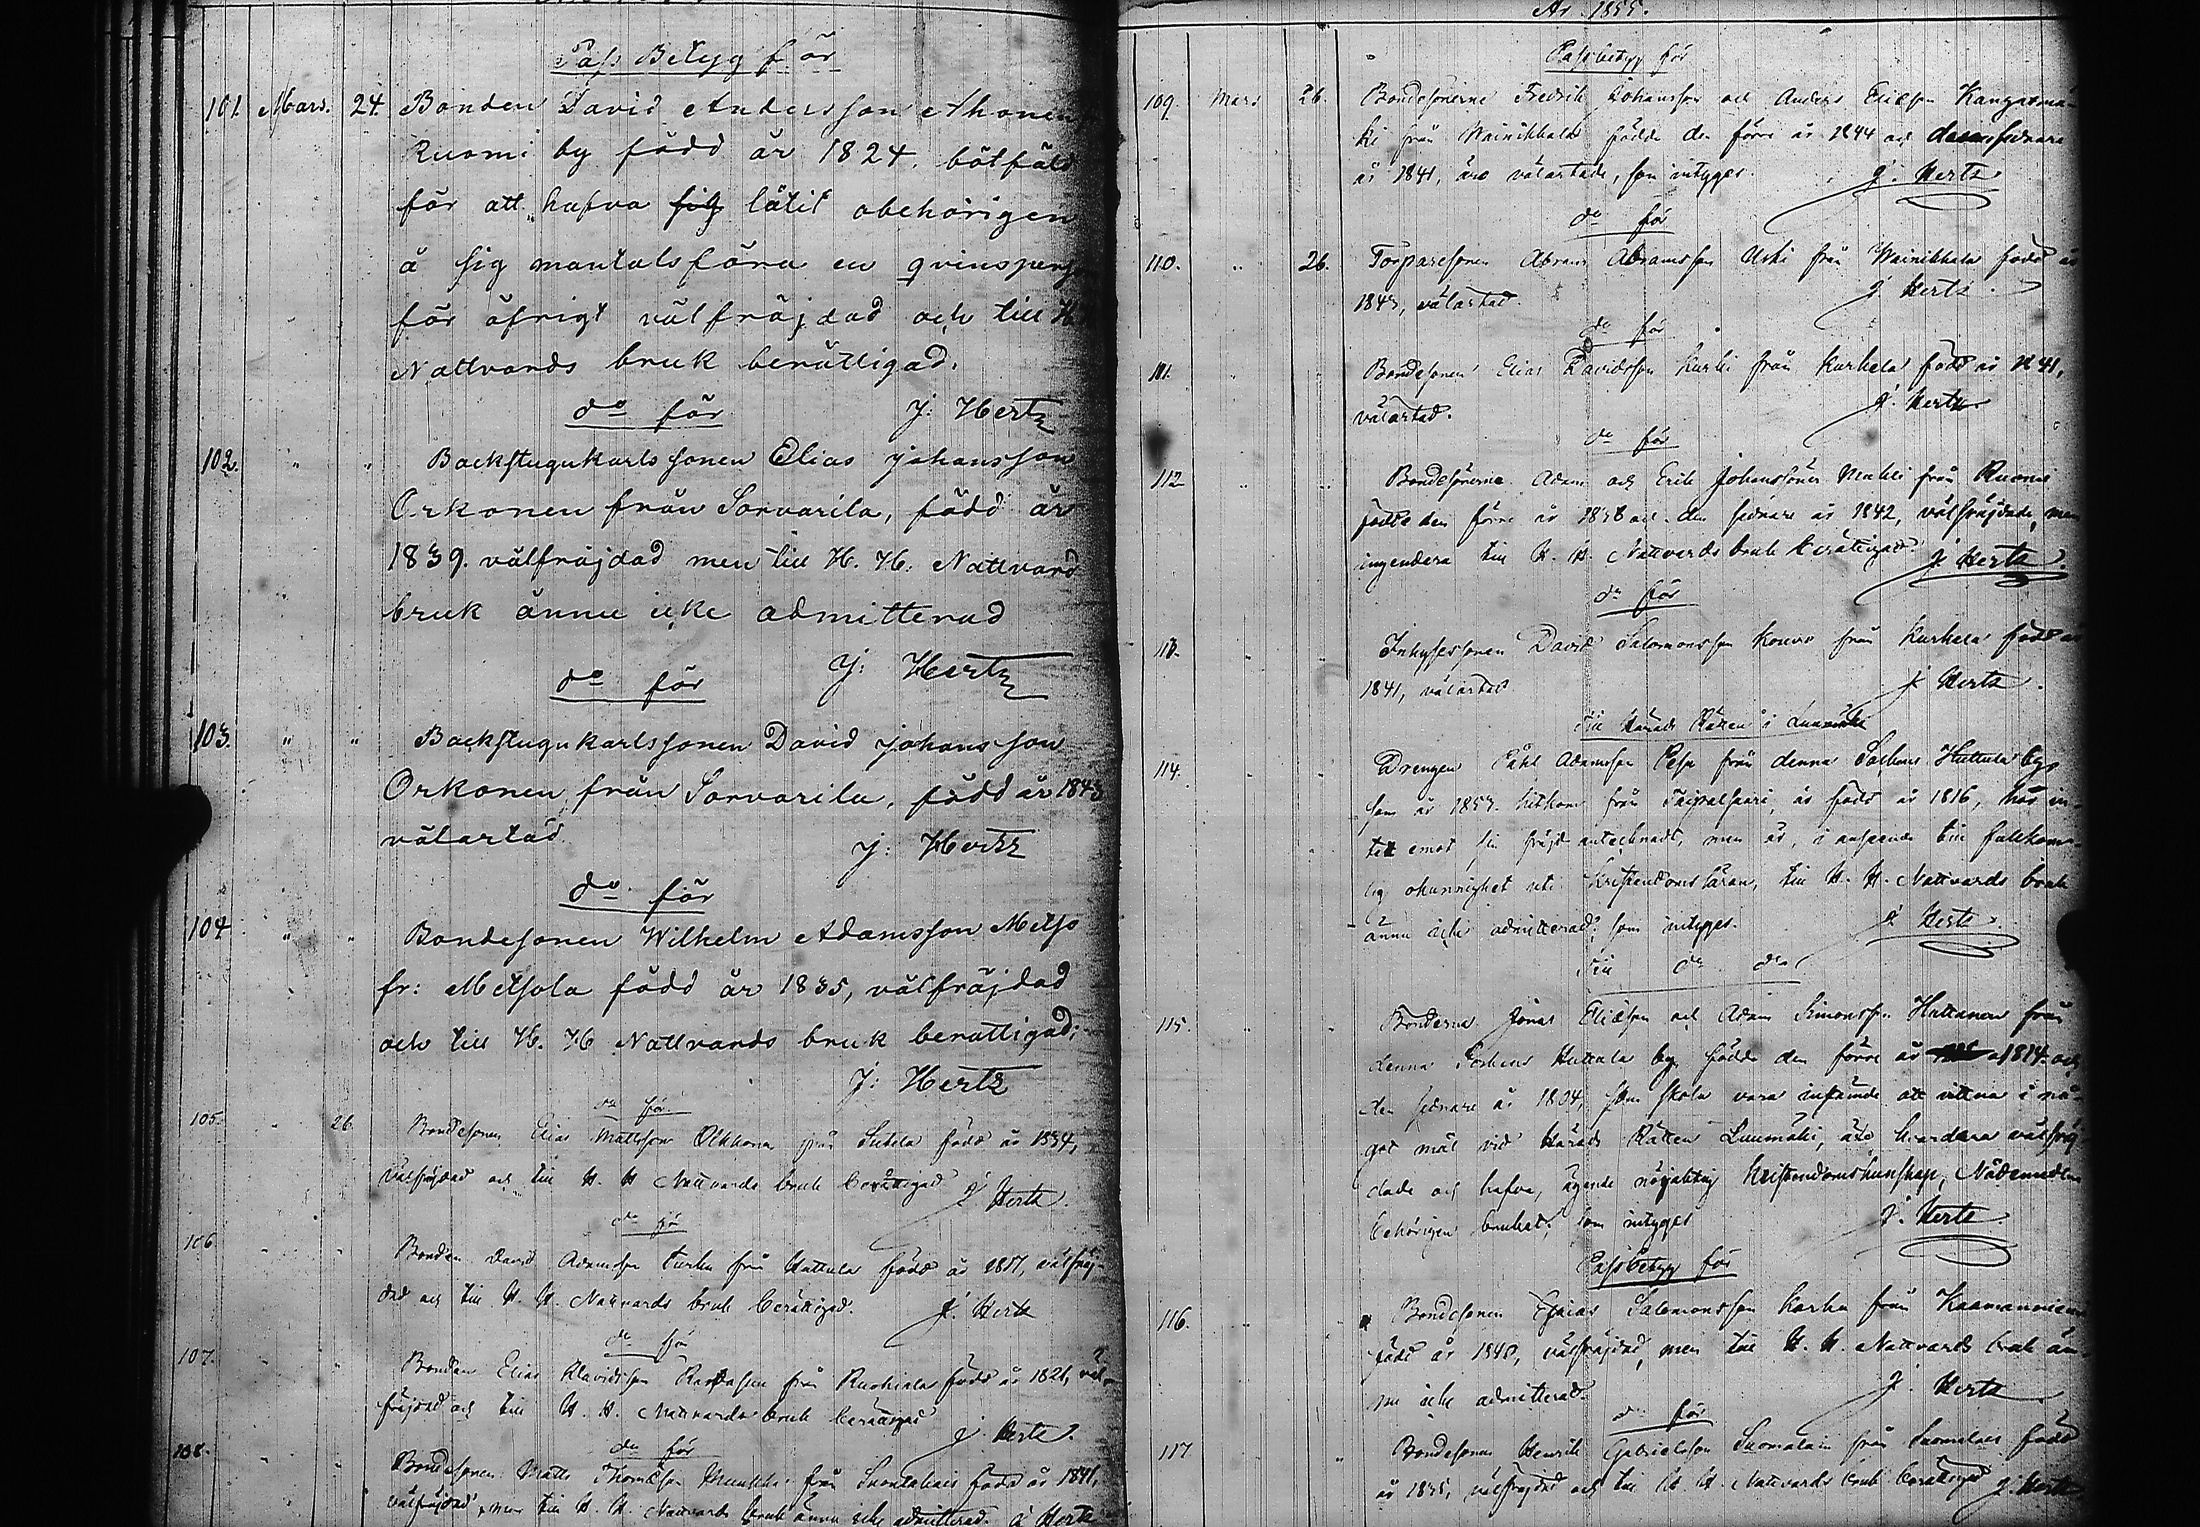 Pass Betyg för
101. Mars. 24. Bonden David Andersson Ahonen
Ruomi by född år 1824. bötfäld
för att hafva sig låtit obehörigen
å sig mantalsföra en qvinsperson
för öfrigt välfräjdad och till H.
Nattvards bruk berättigad.
do för J: Hertz
102. " " Backstugukarlssonen Elias Johansson
Orkonen från Sorvarila, född år
1839. välfräjdad men till H. H. Nattvard
bruk ännu icke admitterad
do för J: Hertz
103. " " Backstugukarlssonen David Johansson
Orkonen från Sorvarila, född år 1843
välartad. J: Hertz
do för
104 " " Bondesonen Wilhelm Adamsson Metso
fr: Metsola född år 1835, välfräjdad
och till H. H Nattvards bruk berättigad:
J: Hertz
do för
105. " 26. Bondesonen Elias Mattsson från född år 1834,
välfräjdad och till H. H Nattvards bruk berättigad J. Hertz.
do för
106 " " Bonden David Adamsson Turku från Huttula född år 1817, välfräj-
dad och till H. H. Nattvards bruk berättigad. J. Hertz
do för
107. " " Bonden Elias Davidsson från född år 1821, väl-
fräjdad och till H. H. Nattvards bruk berättigad J. Hertz.
do för
108. " Bondesonen Matts Thomasson från född år 1841,
välfräjdad, men till H. H. Nattvards bruk ännu icke admitterad. J. Hertz
År 1855.
Passbetyg för
109. Mars 26. Bondesönerne Fredrik Johansson och Anders Ericsson Kangasmä-
ki från Wainikkala födde den förre år 1844 och den sednare
år 1841, äro välartade, som intygas. J. Hertz
do för
110. " 26. Torparesonen Abram Abramsson Uski från Wainikkala född år
1843, välartad. J. Hertz.
do för
111. Bondesonen Elias Davidsson Kurki från Kurkela född år 1841,
välartad. J. Hertz
do för
112 " " Bondesönerne Adam och Erik Johanssöner från Ruomi
födde den förre år 1838 och den sednare år 1842, välfräjdade, men
ingendera till H. H. Nattvards bruk berättigad. J. Hertz.
do för
113. " " Inhysessonen David Salomonsson Kouvo från Kurkela född år
1841, välartad. J. Hertz.
Till Härads Rätten i Luumäki
114. " Drengen Påhl Adamsson Pesu från denna Sockens Huttula by,
som år 1853. hitkom från Taipalsaari, är född år 1816, har in-
tet emot sin fräjd antecknadt, men är, i anseende till fullkom-
lig okunnighet uti Kristendomsläran, till H. H. Nattvards bruk
ännu icke admitterad, som intygas. J. Hertz.
Till do do
115. " " Bönderna Jonas Eliasson och Adam Simonsson Huttunen från
denna Sockens Huttula by, födde den förre år 1814. och
den sednare år 1804, som skola vara instämde att vittna i nå-
got mål vid Härads Rätten Luumäki, äro hvardera välfräj-
dade och hafva, ägande nöjaktig Kristendomskunskap, Nådemedlen
behörigen brukat, som intygas J. Hertz
Passbetyg för
116. " Bondesonen Esaias Salomonsson Karhu från
född år 1840, välfräjdad, men till H. H. Nattvards bruk än-
nu icke admitterad. J. Hertz
do för
117 " Bondesonen Henrik Gabrielsson Suomalain från Suomalais född
år 1835, välfräjdad och till H. H. Nattvards bruk berättigad J. Hertz